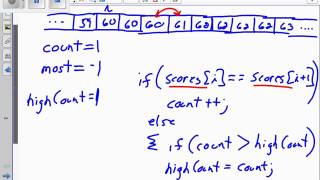 ... 59 60 60 60 61 62 62 62 63 ....
count=1
most=-1
highCount=1
if(scores[i]==scores[i+1])
count++;
else
{ if(count>highCount)
highCount=count;